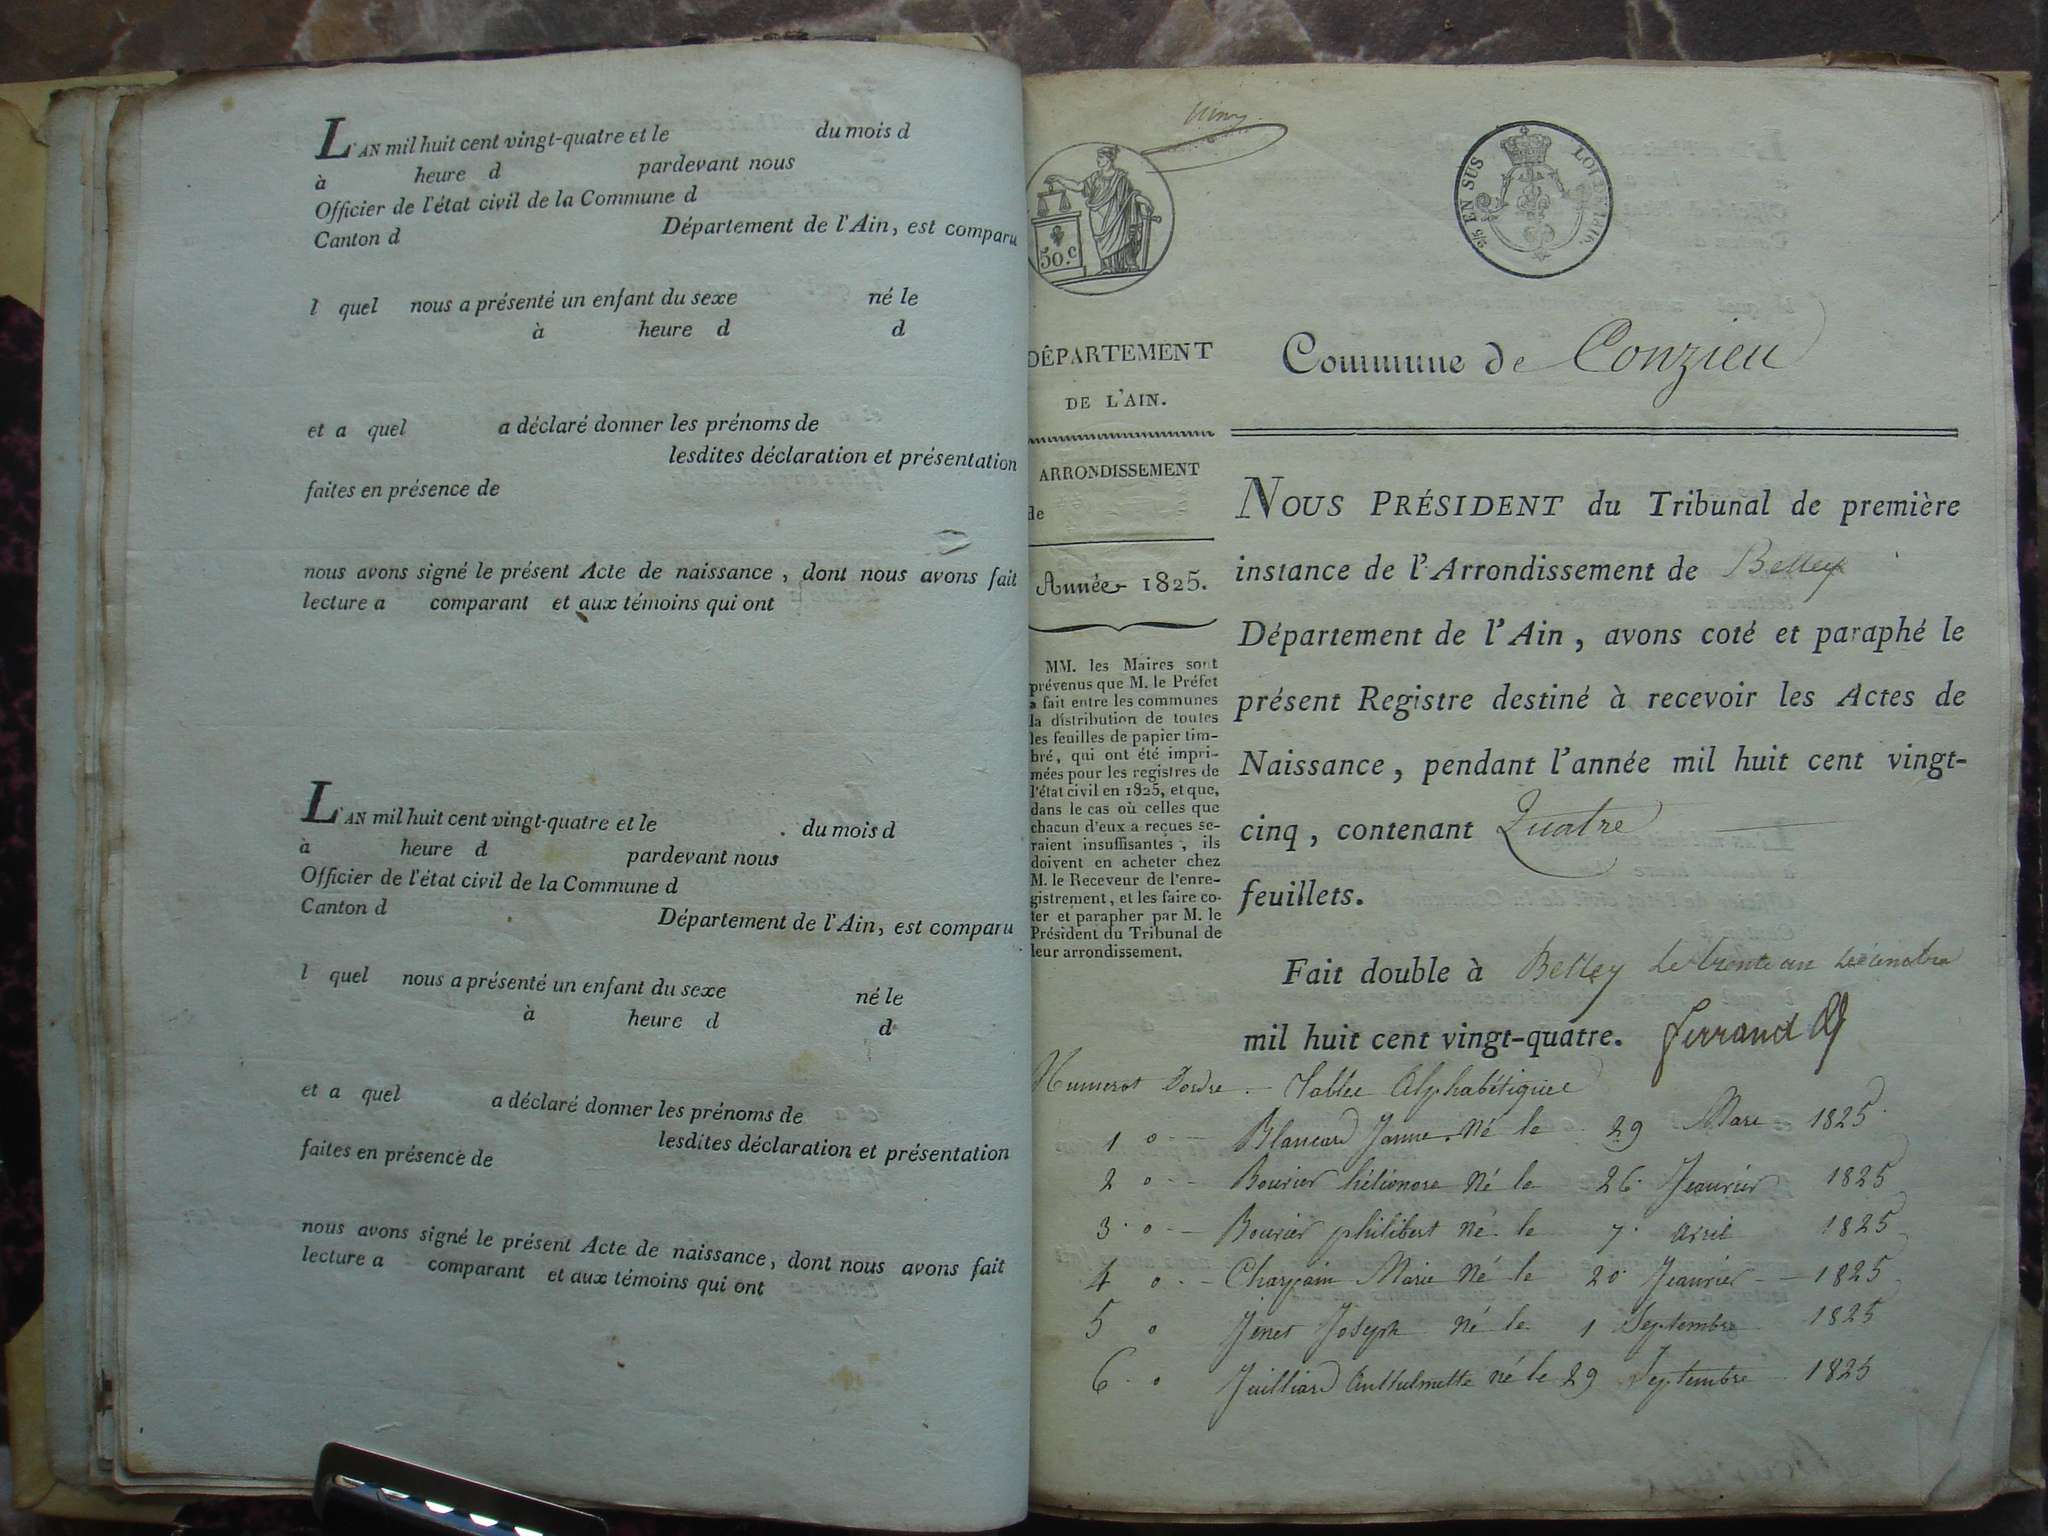 L'AN mil huit cent vingt-quatre et le du mois d
à heure d pardevant nous
Officier de l'état civil de la Commune d
Canton d Département de l'Ain, est comparu
l quel nous a présenté un enfant du sexe né le
à heure d d
et a quel a déclaré donner les prénoms de
lesdites déclaration et présentation
faites en présence de
nous avons signé le présent Acte de naissance, dont nous avons fait
lecture a comparant et aux témoins qui ont
L'AN mil huit cent vingt-quatre et le du mois d
à heure d pardevant nous
Officier de l'état civil de la Commune d
Canton d Département de l'Ain, est comparu
l quel nous a présenté un enfant du sexe né le
à heure d d
et a quel a déclaré donner les prénoms de
lesdites déclaration et présentation
faites en présence de
nous avons signé le présent Acte de naissance, dont nous avons fait
lecture a comparant et aux témoins qui ont
50.c
2/5 EN SUS LOI DE 1816.
DÉPARTEMENT
DE L'AIN.
ARRONDISSEMENT
de
Année 1825.
MM. les Maires sont
prévenus que M. le Préfet
a fait entre les communes
la distribution de toutes
les feuilles de papier tim-
bré, qui ont été impri-
mées pour les registres de
l'état civil en 1825, et que,
dans le cas où celles que
chacun d'eux a reçues se-
raient insuffisantes, ils
doivent en acheter chez
M. le Receveur de l'enre-
gistrement, et les faire co-
ter et parapher par M. le
Président du Tribunal de
leur arrondissement.
Commune de Conzieu
NOUS PRÉSIDENT du Tribunal de première
instance de l'Arrondissement de Belley
Département de l'Ain, avons coté et paraphé le
présent Registre destiné à recevoir les Actes de
Naissance, pendant l'année mil huit cent vingt-
cinq, contenant Quatre
feuillets.
Fait double à Belley le trente un décembre
mil huit cent vingt-quatre. ferrand
Numerot Dordre. Table Alphabétique
1 o Blancard Janne né le 29 Mars 1825
2 o Bourier héliénore né le 26 Jeanvier 1825
3 o Bourier philibert né le 7 avril 1825
4 o Charpain Marie né le 20 Jeanvier 1825
5 o Jenet Joseph né le 1 Septembre 1825
6 o Juilliard Anthelmette né le 29 Septembre 1825